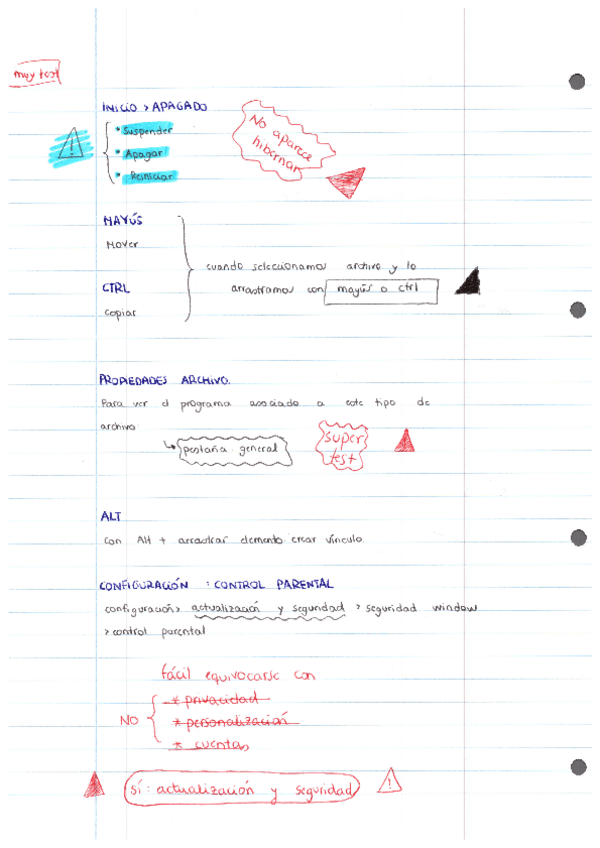 muy test
INICIO > APAGADO
* Suspender
* Apagar
* Reiniciar
No aparece
hibernar
MAYÚS
Mover
CTRL
Copiar
cuando seleccionamos archivo y lo
arrastramos con mayús o ctrl
PROPIEDADES ARCHIVO.
Para ver el programa asociado a este tipo de
archivo
pestaña general
super
test
ALT
con Alt + arrastrar elemento: crear vínculo.
CONFIGURACIÓN : CONTROL PARENTAL
configuración > actualización y seguridad > seguridad window
> control parental
fácil equivocarse con
NO
* privacidad
* personalización
* cuentas
Sí: actualización y seguridad